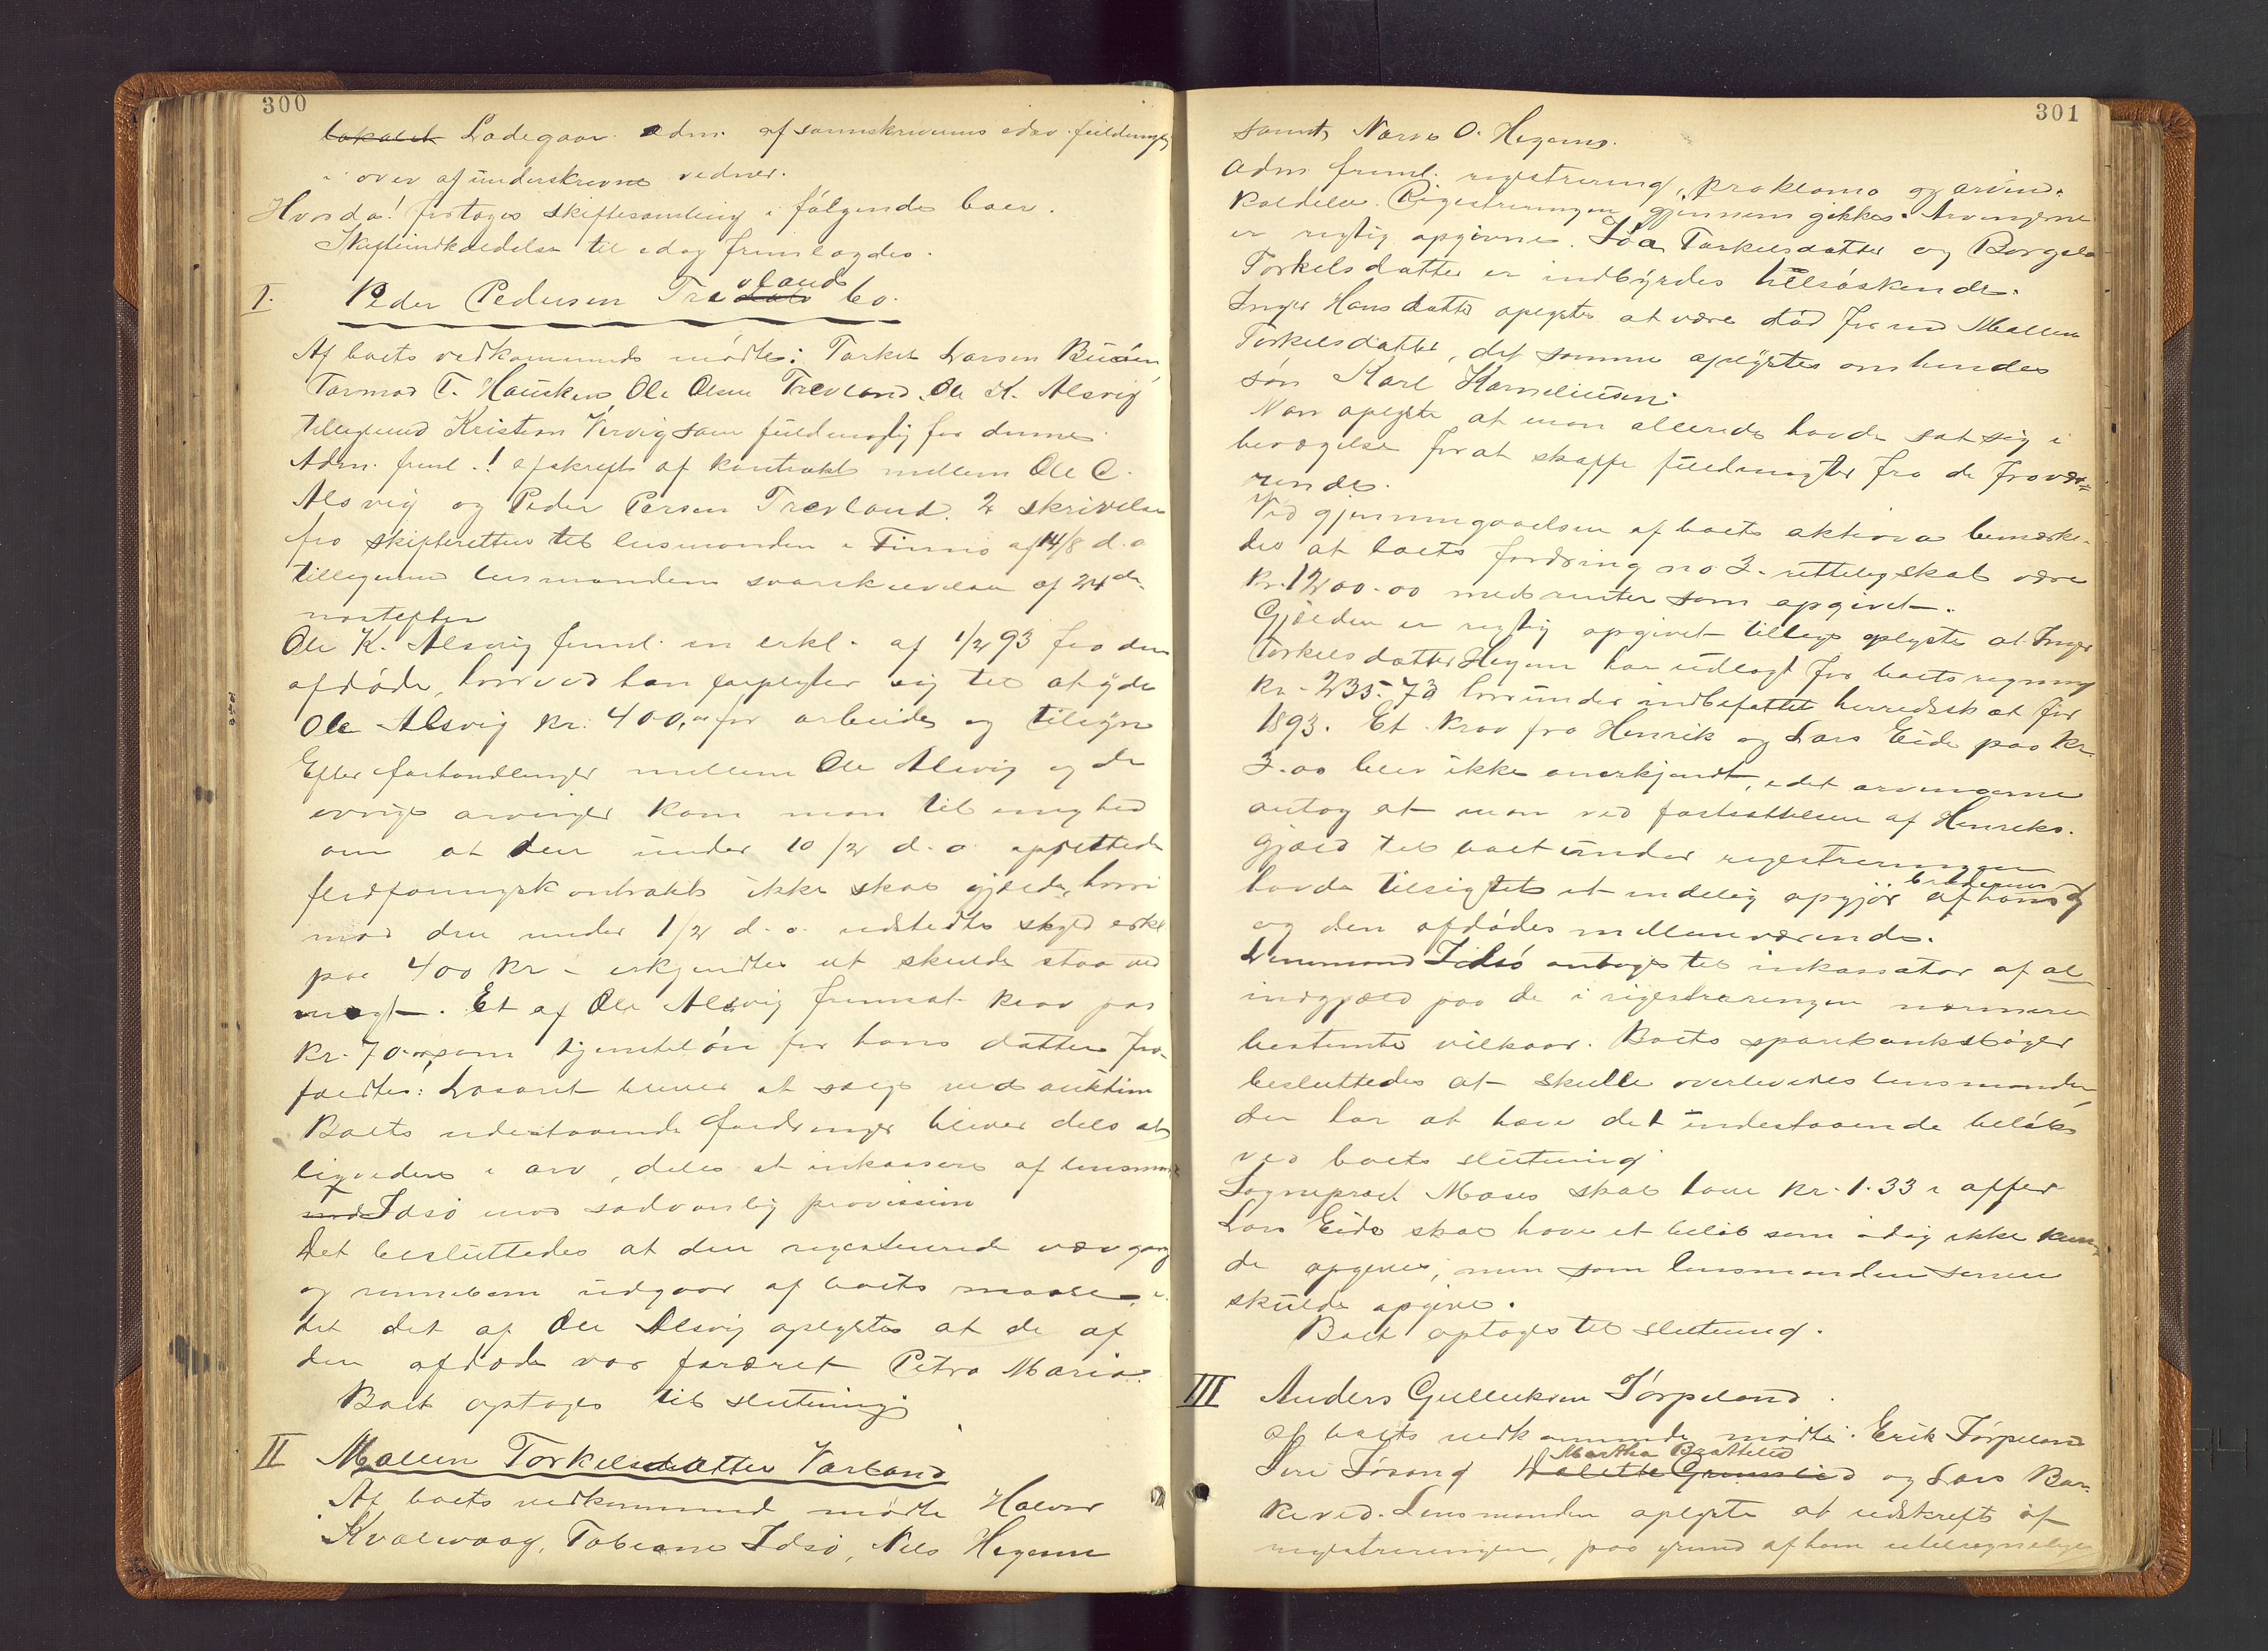 300
lokalet Ladegaar. Adm. af sorenskriverens edsv. fuldmægtig
i overv af underskrevne vidner.
Hvorda! foretoges skiftesamling i følgende boer.
Skifteindkaldelse til idag fremlagdes.
I. Peder Pedersen Trevlands bo.
Af boets vedkommende mødte: Torkel Larsen Buøen
Tormod T. Hausken, Ole Olsen Trevland, Ole K. Alsvig
tilligemed Kristen Vervig som fuldmægtig for denne.
Adm. freml.! afskrift af kontrakt mellem Ole C.
Alsvig og Peder Persen Trevland. 2 skrivelser
fra skifteretten til lensmanden i Finnø af 14/8 d.a
tilligemed lensmandens svarskrivelse af 24de
næstefter
Ole K. Alsvig freml. en erkl. af 1/2 93 fra den
afdøde, hvorved han forpligter sig til at yde
Ole Alsvig kr. 400,00 for arbeide og tilsyn
Efter forhandlinger mellem Ole Alsvig og de
øvrige arvinger kom man til enighed
om at den under 10/2 d. a. oprettede
flødføringskontrakt ikke skal gjælde, hvori
mod den under 1/2 d. a. udstedte skyld erkl
paa 400 kr - erkjendtes at skulde staa ved
magt. Et af Ole Alsvig fremsat krav paa
kr. 70.00 som tjenesteløn for hans datter fra-
faldtes: Løsøret bliver at sælge ved auktion
Boets udestaaende fordringer bliver dels at
ligvidere i arv, dels at inkassere af lensmand
Idsø mod sædvanlig provission
Det besluttedes at den registrerede vævgang
og rennebom udgaar af boets masse, i-
det det af Ole Alsvig oplystes at de af
den afdøde var foræret Petra Maria.
Boet optages til slutning
II Mallin Torkelsdatter Varland
Af boets vedkommende mødte Halvor
Kvalevaag, Tobias Idsø, Nils Hegerm
301
samt Narve O. Hegerm.
Adm freml. registrering, proklama og arvind-
kaldelse. Registreringen gjennemgikkes. Arvingerne
er rigtig opgivne. Siva Torkelsdatter og Borgele
Torkelsdatter er indbyrdes helsøskende.
Inger Hansdatter oplystes at være død før end Mallen
Torkelsdatter, det samme oplystes om hendes
søn Karl Korneliusen.
Man oplyste at man allerede havde sat sig i
bevægelse for at skaffe fuldmagter fra de fravæ-
rende.
Ved gjennemgaaelsen af boets aktiva bemærke-
des at boets fordring no 3. rettelig skal være
kr. 1200.00 med renter som opgivet.
Gjælden er rigtig opgivet tillige oplystes at Inger
Torkelsdatter Hegerm har udlagt for boets regning
kr. 235.73 hvorunder indbefattet herredsskat for
1893. Et krav fra Henrik og Lars Eide paa kr.
3.00 blev ikke anerkjendt, idet arvingerne
antog at man ved fastsættelsen af Henriks.
gjæld til boet under registreringen
havde tilsigtet et endelig opgjør af hans brødrenes
og den afdødes mellemværende.
Lensmand Idsø antages til inkassator af al
indgjæld paa de i registreringen nærmere
bestemte vilkaar. Boets sparebanksbøger
besluttedes at skulle overleveres lensmanden,
der har at hæve det indestaaende beløb
ved boets slutning
Sogneprest Moses skal have kr. 1.33 i offer
Lars Eide skal have et beløb som idag ikke kun-
de opgives, men som lensmanden senere
skulde opgive.
Boet optages til slutning.
III Anders Gulleiksen Tørpeland.
Af boets vedkommende mødte. Erik Tørpeland
Siri Tøsang Martha Brattelid og Lars Bar-
keved. Lensmanden oplyste at udskrift af
registreringen, paa grund af ham utilregnelige